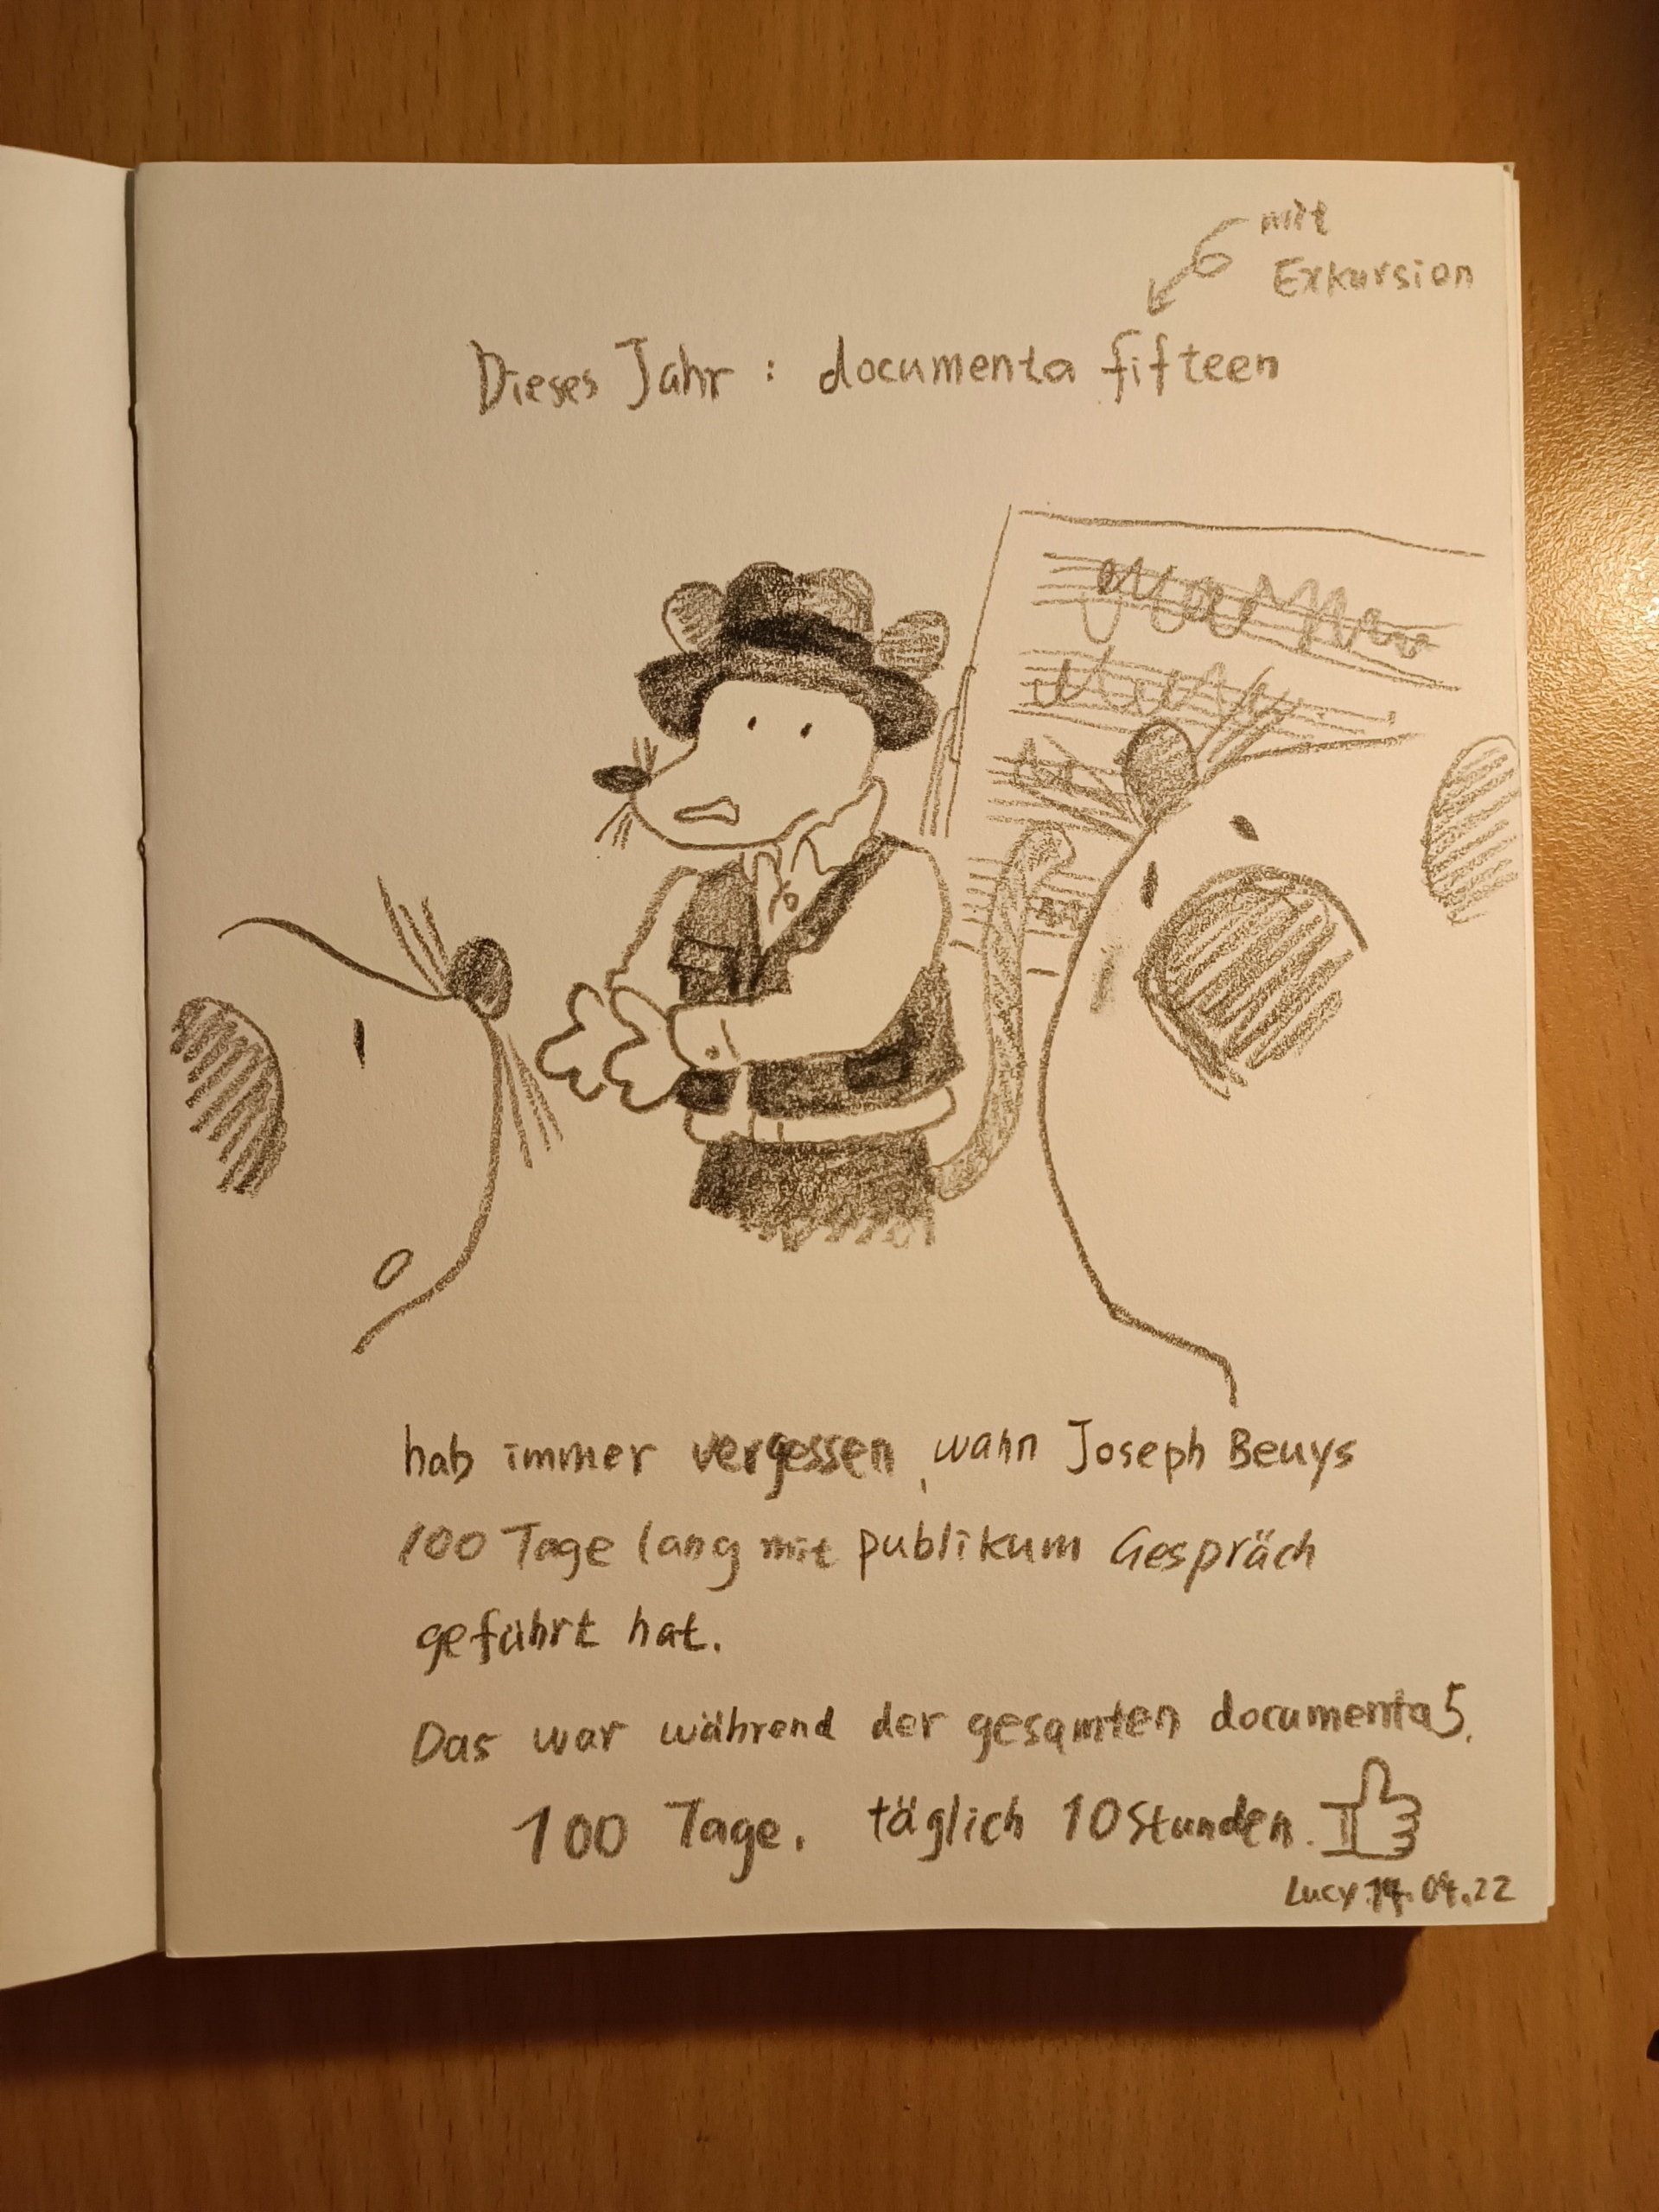 mit
Exkursion
Dieses Jahr : documenta fifteen
hab immer vergessen, wann Joseph Beuys
100 Tage lang mit publikum Gespräch
geführt hat.
Das war während der gesamten documenta 5.
100 Tage. täglich 10 Stunden.
Lucy